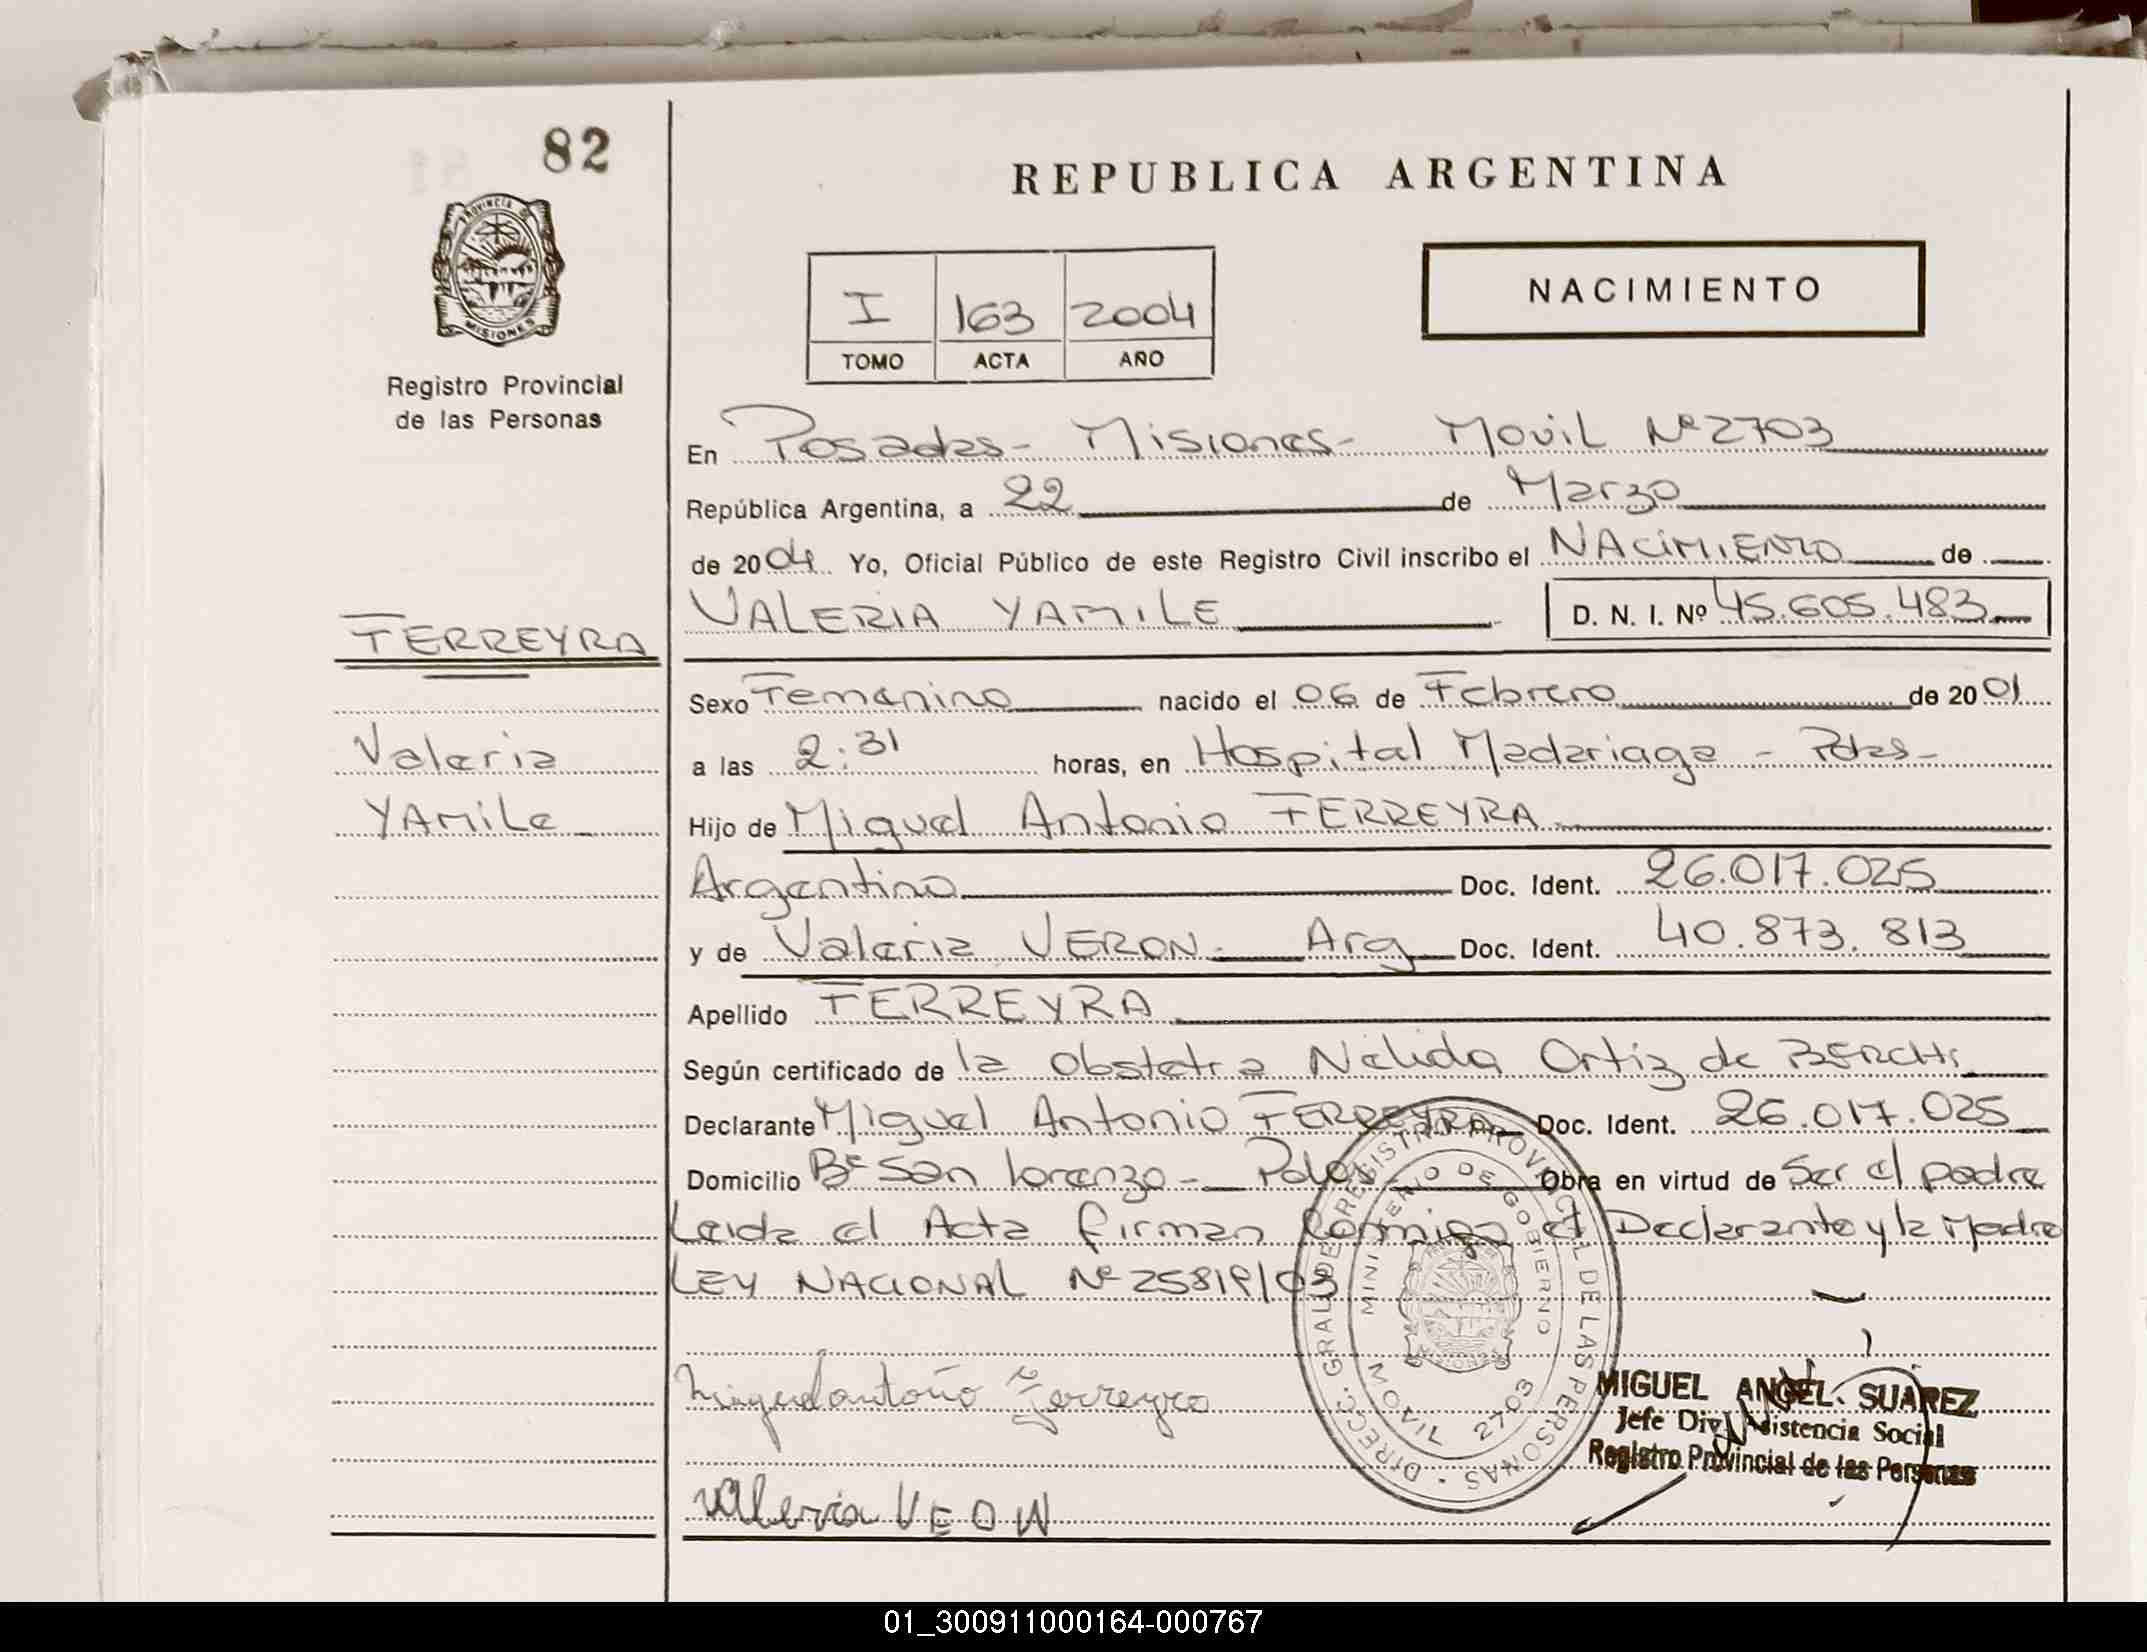 82
PROVINCIA DE
MISIONES
Registro Provincial
de las Personas
REPUBLICA ARGENTINA
I 163 2004
TOMO ACTA AÑO
NACIMIENTO
En Posadas- Misiones- Movil Nº 2703
República Argentina, a 22 de Marzo
de 2004 Yo, Oficial Público de este Registro Civil inscribo el NACIMIENTO de
VALERIA YAMILE D. N. I. Nº 45.605.483
FERREYRA
Valeria
YAMile
Sexo Femenino nacido el 06 de Febrero de 2001
a las 2:31 horas, en Hospital Madariaga - Pdas-
Hijo de Miguel Antonio FERREYRA
Argentino Doc. Ident. 26.017.025
y de Valeria VERON. Arg Doc. Ident. 40.873.813
Apellido FERREYRA
Según certificado de la Obstetra Nelida Ortiz de
Declarante Miguel Antonio FERREYRA Doc. Ident. 26.017.025
Domicilio Bº San Lorenzo- Pdas- Obra en virtud de Ser el padre
Leida el Acta firman Conmigo el Declarante y la Madre
LEY NACIONAL Nº 25819/03
DIRECC. GRAL. DE REGISTRO PROVINCIAL DE LAS PERSONAS
MINISTERIO DE GOBIERNO
MOVIL 2703
MISIONES
Miguel antonio Ferreyra
MIGUEL ANGEL SUAREZ
Jefe Div. Asistencia Social
Registro Provincial de las Personas
Valeria VEON
01_300911000164-000767